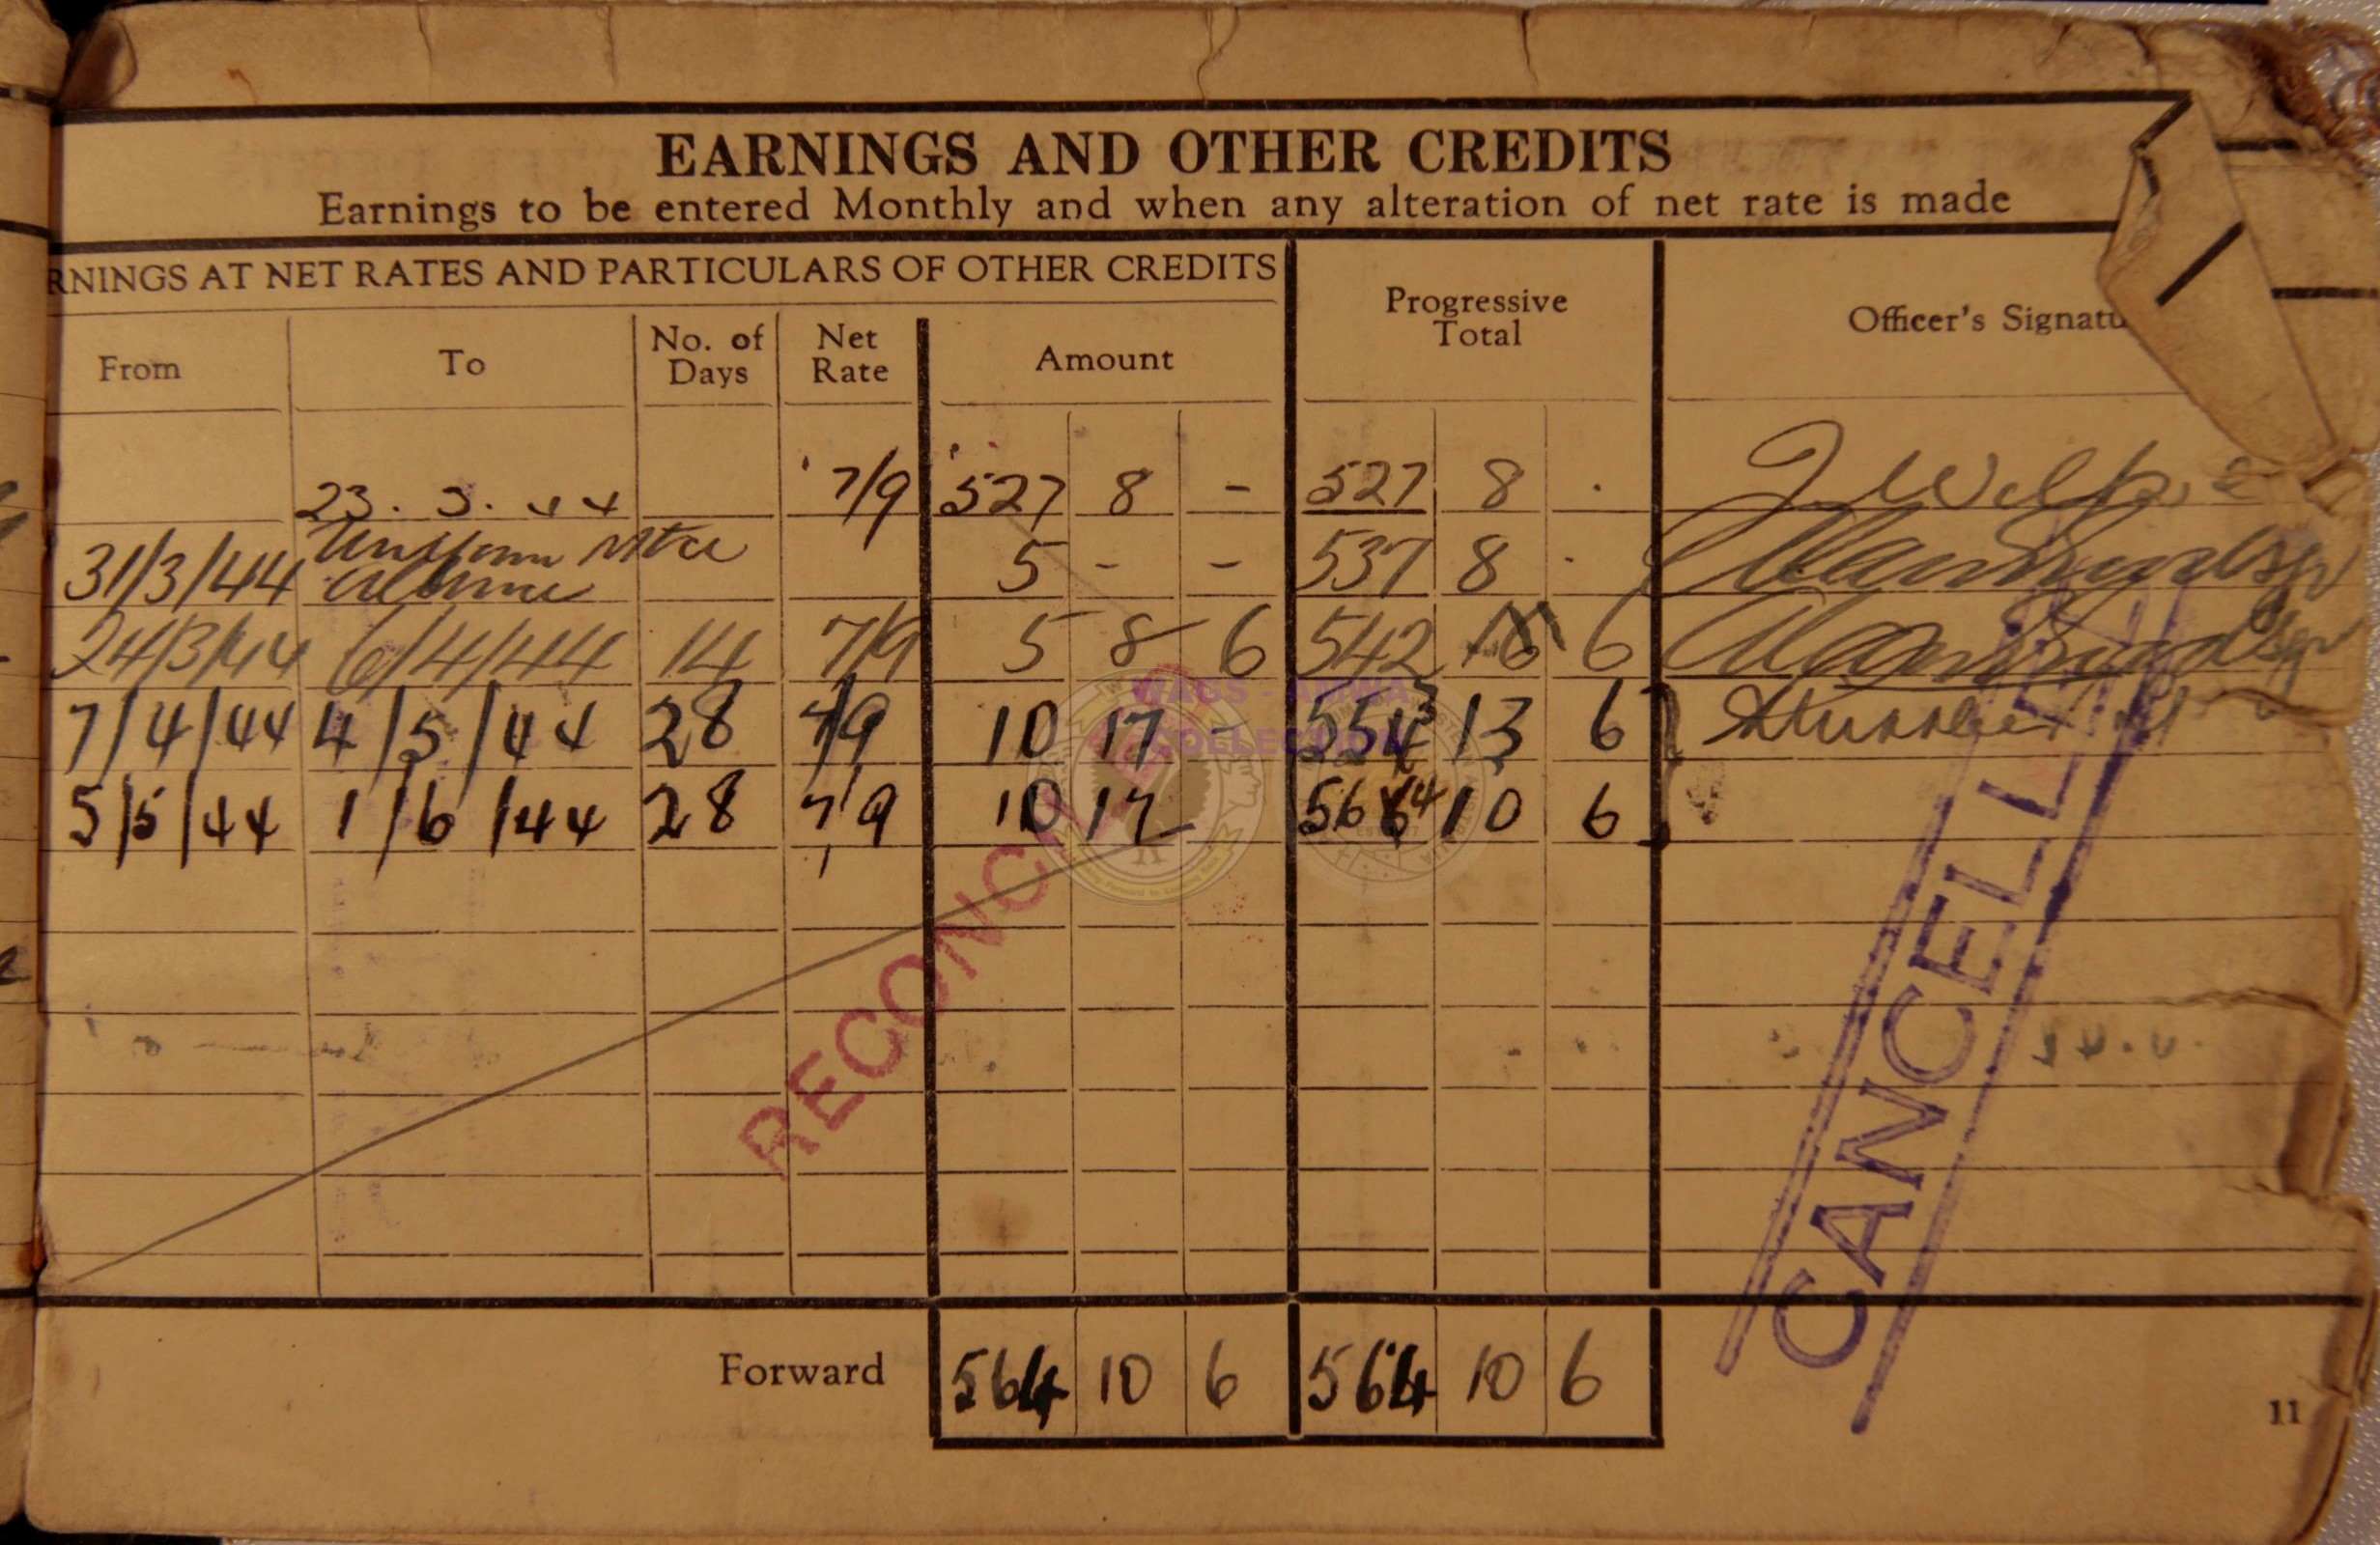 EARNINGS AND OTHER CREDITS
Earnings to be entered Monthly and when any alteration of net rate is made
RNINGS AT NET RATES AND PARTICULARS OF OTHER CREDITS
Progressive Total
Officer's Signatu
From To No. of Days Net Rate Amount
23. 3. 44 7/9 527 8 - 527 8 .
31/3/44 Uniform 5 - - 537 8 .
24/3/44 6/4/44 14 7/9 5 8 6 542 16 6
7/4/44 4/5/44 28 7/9 10 17 - 553 13 6
5/5/44 1/6/44 28 7/9 10 17 - 564 10 6
WAGS - AWWA
COLLECTION
RECONCILED
CANCELLED
Forward 564 10 6 564 10 6
11